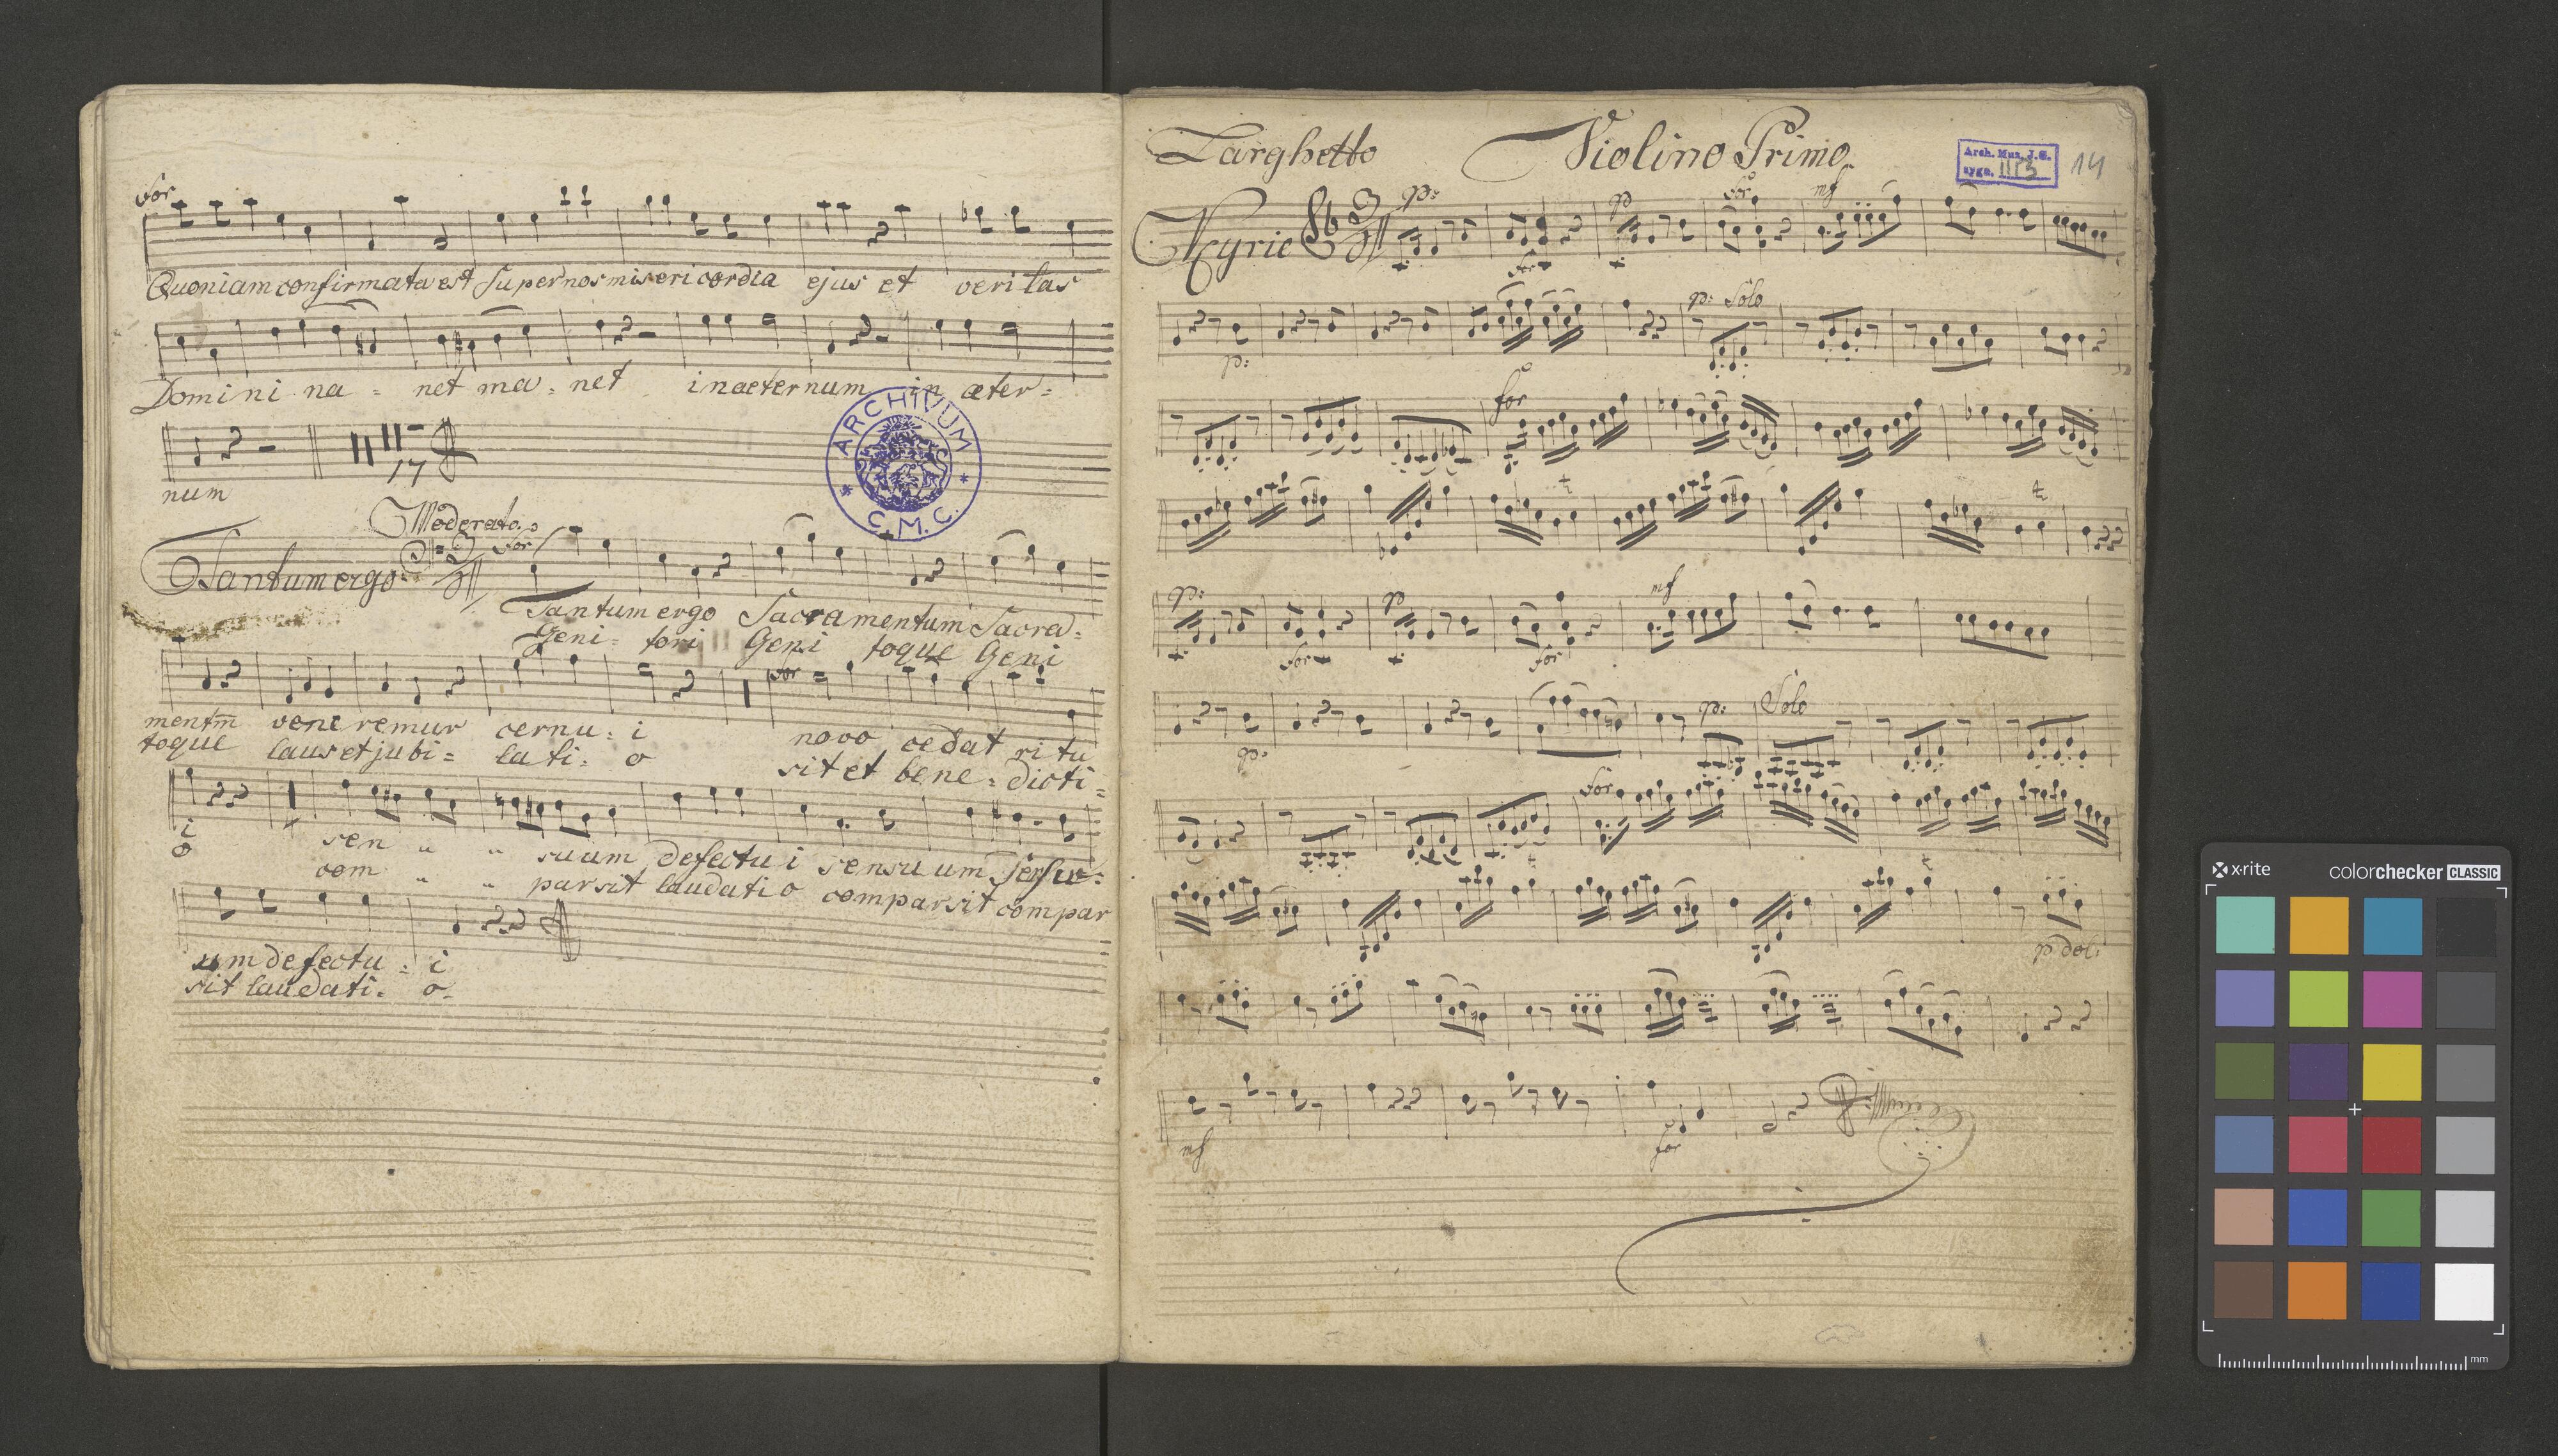 for
Quoniam confirmata est super nos misericordia ejus et veritas
Domini na = net ma = net in aeternum in æter =
num
17
ARCHIVUM
* C. M. C. *
Moderato.
Tantum ergo
for
Tantum ergo Sacramentum Sacra =
Geni = tori Geni toque Geni
for
mentm̄ veneremur cernu = i novo cedat ritu
toque laus et jubi = lati = o sit et bene = dicti =
i sen " " suum defectu i sensuum sensu =
o com " " par sit laudatio comparsit compar
um defectu = i
sit laudati = o.
Larghetto Violino Primo.
Arch. Muz. J. G.
sygn. III 3
14
Kyrie
p: p for mf
for
p: Solo
p:
for
tr tr
p: p mf
for for
p: Solo
p:
for
p dol:
mf for